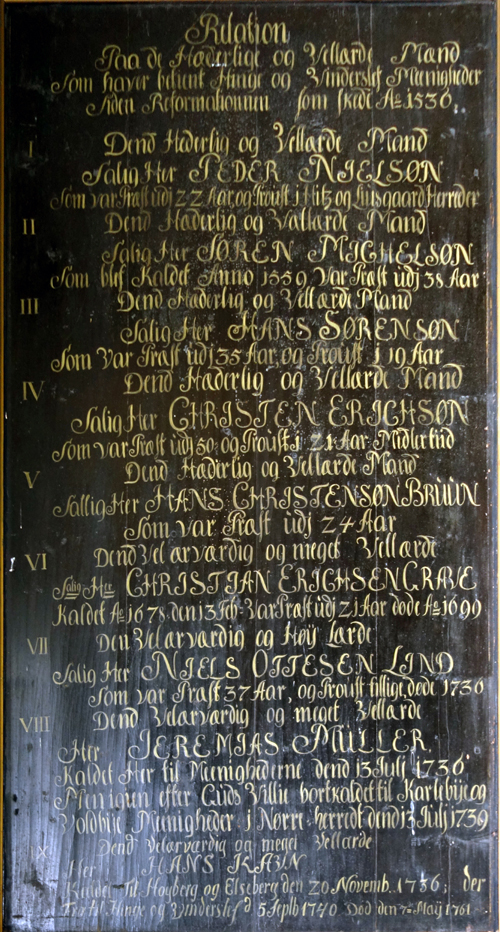 Relation
Paa de Hæderlige og Vellærde Mænd
Som haver betient Hinge og Vinderslef Meenigheder
siden Reformationnen som skede Aō 1536.
I Dend Hederlig og Vellærde Mand
Salig Her PEDER NIELSØN
Som var Præst udj 22 Aar og Proust i Hitz og Liusgaard Herreder
II Dend Hæderlig og Vallærde Mand
Salig Her SØREN MICHELSØN
Som blef Kaldet Anno 1559 Var Præst udj 38 Aar
III Dend Hæderlig og Vellærde Mand
Salig Her HANS SØRENSØN
Som Var Præst udj 35 Aar og Proust i 19 Aar
IV Dend Hæderlig og Vellærde Mand
Salig Her CHRISTEN ERICHSØN
Som var Præst udj 50 og Proust i 21 Aar Midlertiid
V Dend Hæderlig og Vellærde Mand
Sallig Her HANS CHRISTENSØN BRÙÙN
Som var Præst udj 24 Aar
VI Dend Vel ærværdig og meget Vellærde
Salig Her CHRISTIAN ERICHSEN GRAVE
Kaldet Aō 1678 den 13 Feb. Var Præst udj 21 Aar døde Aō 1699
VII Den Velærværdig og Høÿ Lærde
Salig Her NIELS OTTESEN LIND
Som var Præst 37 Aar, og Proust tillige, døde 1736
VIII Dend Velærværdig og meget Vellærde
Her JEREMIAS MÜLLER
Kaldet Her til Meenighederne dend 13 Julj 1736
Men igien efter Guds Villie bortkaldet til Karlebÿe og
Voldbÿe Meenigheder i Nørre herredt dend 13 Julj 1739
IX Dend Velærværdig og meget Vellærde
Her HANS RAVN
Kaldet Til Houberg og Elseberg den 20 Novemb. 1736; der
Fra til Hinge og Vinderslef d 5 Septb 1740 Død den 7de Maÿ 1761